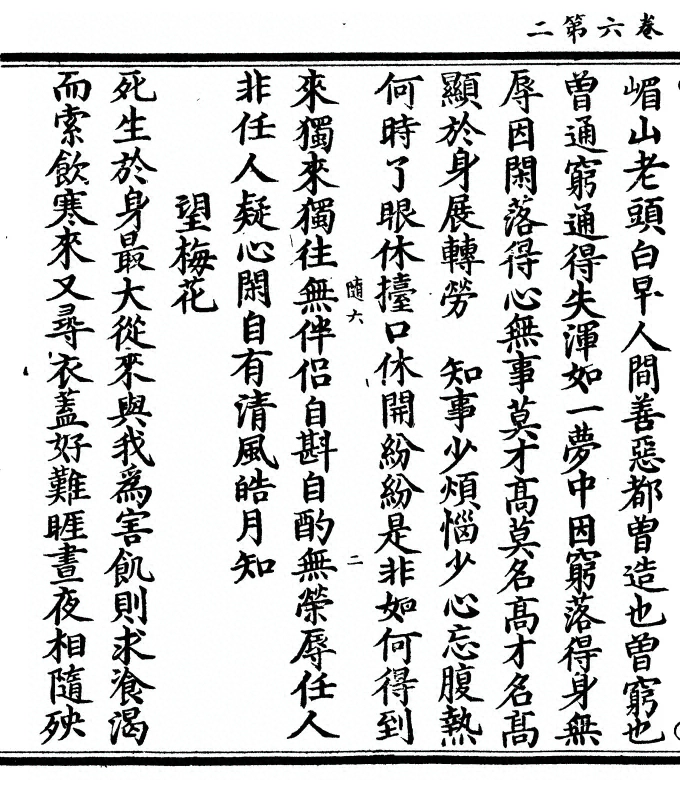 卷六第二
嵋山老頭白早人間善惡都曾造也曾窮也
曾通窮通得失渾如一夢中因窮落得身無
辱因閑落得心無事莫才高莫名高才名高
顯於身展轉勞　知事少煩惱少心忘腹熱
何時了眼休擡口休開紛紛是非如何得到
隨六　二
來獨來獨往無伴侶自斟自酌無榮辱任人
非任人疑心閑自有清風皓月知
望梅花
死生於身最大從來與我爲害飢則求飡渴
而索飲寒來又尋衣蓋好難睚晝夜相隨殃